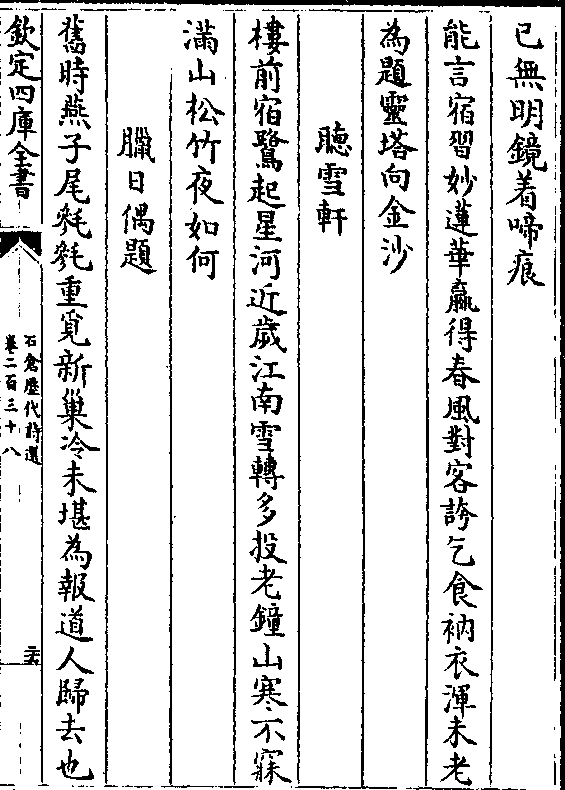 已無明鏡着啼痕
能言宿習妙蓮華贏得春風對客誇乞食衲衣渾未老
為題靈塔向金沙
聽雪軒
樓前宿鷺起星河近歲江南雪轉多投老鐘山寒不寐
滿山松竹夜如何
臘日偶題
舊時燕子尾毿毿重覓新巢冷未堪為報道人歸去也
欽定四庫全書
石倉歷代詩選
卷二百三十八